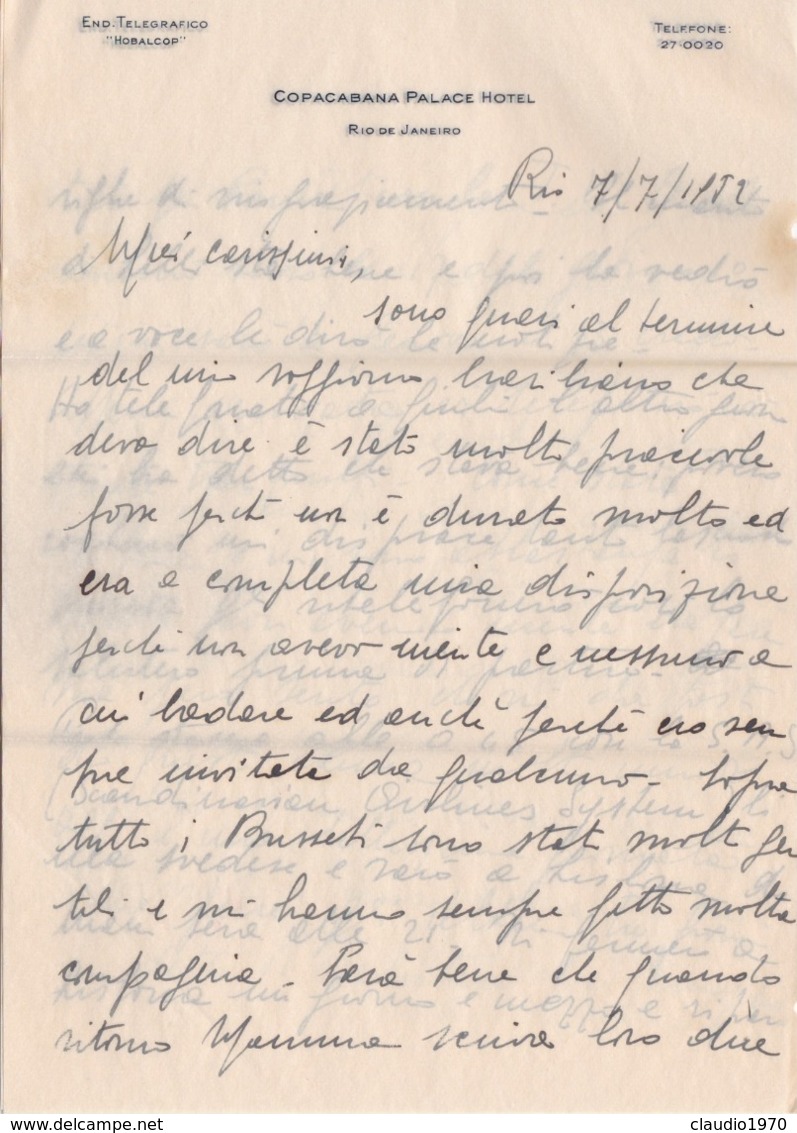 END. TELEGRAFICO
"HOBALCOP"
TELEFONE:
27-0020
COPACABANA PALACE HOTEL
RIO DE JANEIRO
Rio 7/7/1952
Miei carissimi,
sono quasi al termine
del mio soggiorno brasiliano che
devo dire è stato molto piacevole
forse perché non è durato molto ed
era a completa mia disposizione
perché non avevo niente e nessuno a
cui badare ed anche perché ero sem
pre invitata da qualcuno - Sopra
tutto i Busseti sono stati molto gen
tili e mi hanno sempre fatto molta
compagnia - Sarà bene che quando
ritorno Mamma scriva loro due
claudio1970